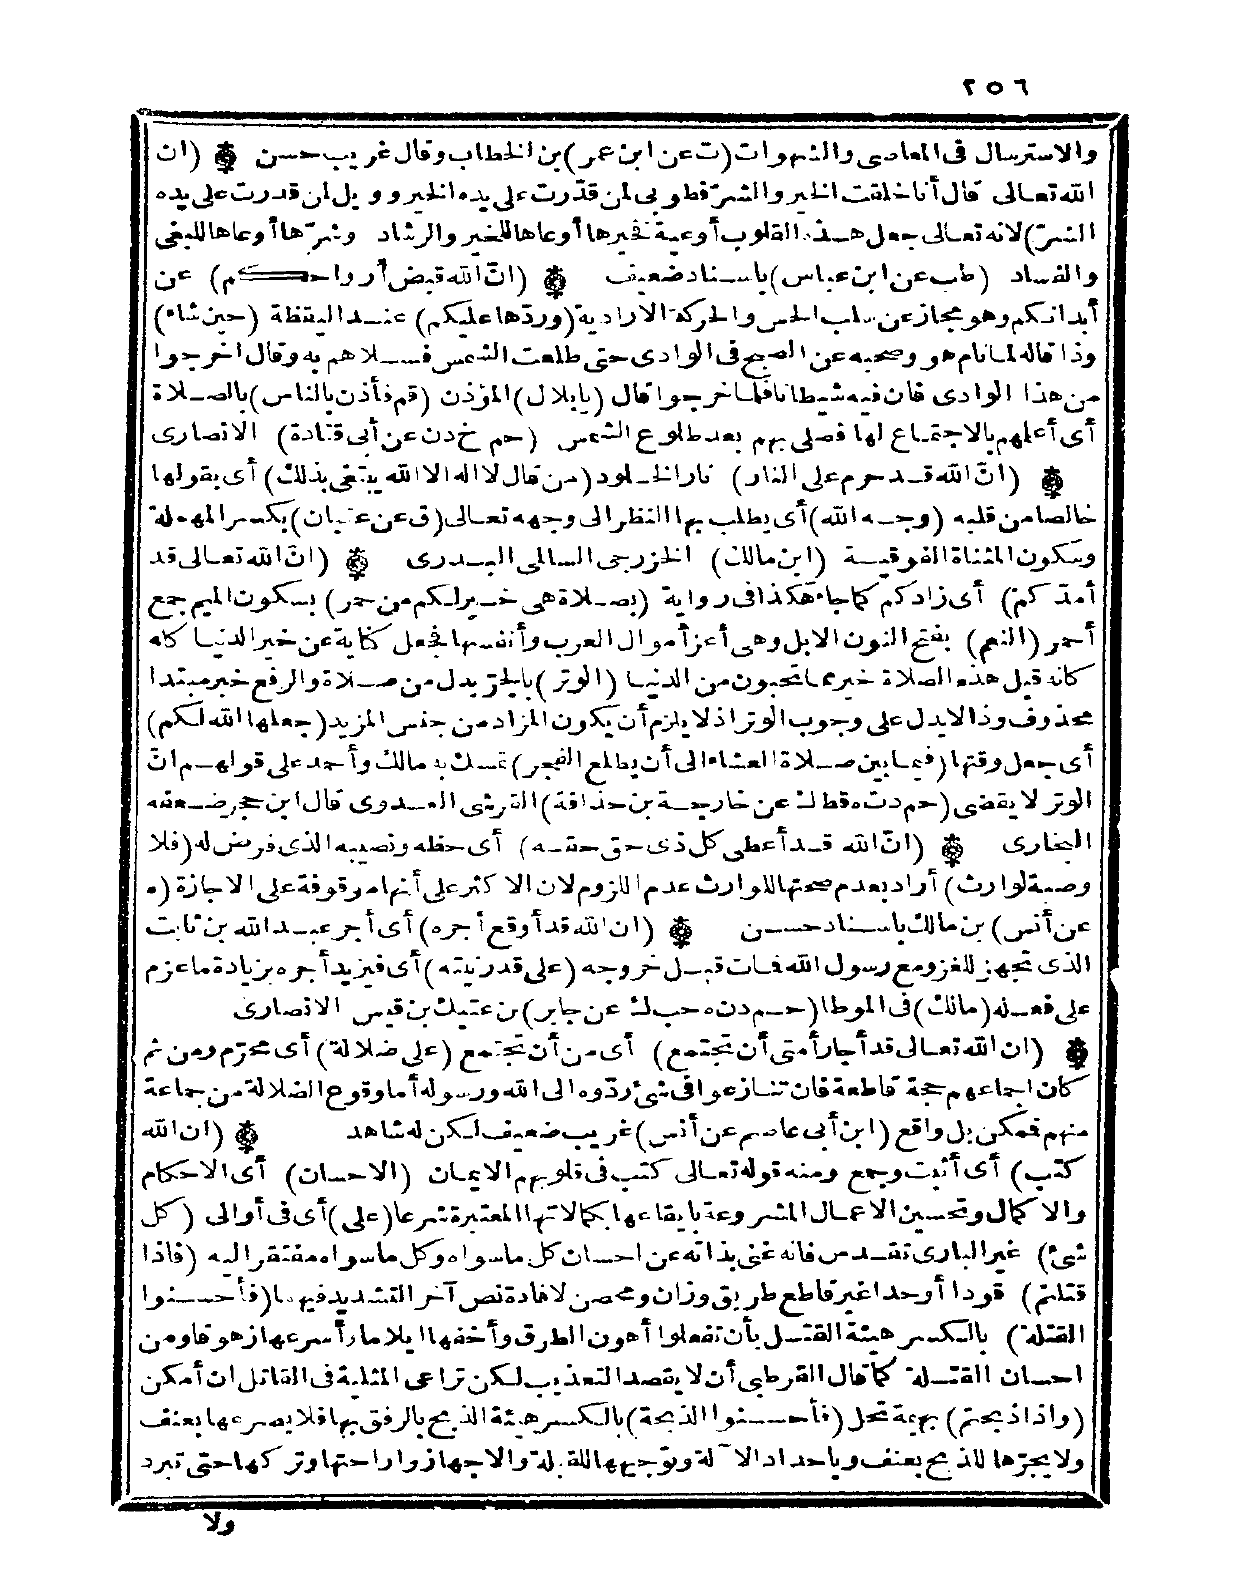 ٢٥٦
والاسترسال فى المعاصى والشهوات (ت عن ابن عمر) بن الخطاب وقال غريب حسن (ان
الله تعالى قال أنا خلقت الخير والشرّ فطوبى لمن قدّرت على يده الخير وويل لمن قدرت على يده
الشرّ) لانه تعالى جعل هذه القلوب أوعية فخيرها أوعاها للخير والرشاد وشرّها أوعاها للبغى
والفساد (طب عن ابن عباس) باسناد ضعيف (انّ الله قبض أرواحكم) عن
أبدانكم وهو مجاز عن سلب الحس والحركة الارادية (وردّها عليكم) عند اليقظة (حين شاء)
وذا قاله لما نام هو وصحبه عن الصبح فى الوادى حتى طلعت الشمس فسلاهم به وقال اخرجوا
من هذا الوادى فان فيه شيطانا فلما خرجوا قال (يا بلال) المؤذن (قم فأذن بالناس) بالصلاة
أى أعلمهم بالاجتماع لها فصلى بهم بعد طلوع الشمس (حم خ د ن عن أبى قتادة) الانصارى
(انّ الله قد حرم على النار) نار الخلود (من قال لا اله الا الله يبتغى بذلك) أى بقولها
خالصا من قلبه (وجه الله) أى يطلب بها النظر الى وجهه تعالى (ق عن عتبان) بكسر المهملة
وسكون المثناة الفوقية (ابن مالك) الخزرجى السالمى البدرى (انّ الله تعالى قد
أمدّكم) أى زادكم كما جاء هكذا فى رواية (بصلاة هى خير لكم من حمر) بسكون الميم جمع
أحمر (النعم) بفتح النون الابل وهى أعز أموال العرب وأنفسها فجعل كناية عن خير الدنيا كله
كانه قيل هذه الصلاة خير مما تحبون من الدنيا (الوتر) بالجرّ بدل من صلاة والرفع خبر مبتدا
محذوف وذا لا يدل على وجوب الوتر اذ لا يلزم أن يكون المزاد من جنس المزيد (جعلها الله لكم)
أى جعل وقتها (فيما بين صلاة العشاء الى أن يطلع الفجر) تمسك به مالك وأحمد على قولهم انّ
الوتر لا يقضى (حم د ت ه قط ك عن خارجة بن حذافة) القرشى العدوى قال ابن حجر ضعفه
البخارى (انّ الله قد أعطى كل ذى حق حقه) أى حظه ونصيبه الذى فرض له (فلا
وصية لوارث) أراد بعدم صحتها للوارث عدم اللزوم لان الاكثر على أنها موقوفة على الاجازة (ه
عن أنس) بن مالك باسناد حسن (ان الله قد أوقع أجره) أى أجر عبد الله بن ثابت
الذى تجهز للغزو مع رسول الله فمات قبل خروجه (على قدر نيته) أى فيزيد أجره بزيادة ما عزم
على فعله (مالك) فى الموطا (حم د ن ه حب ك عن جابر) بن عتيك بن قيس الانصارى
(ان الله تعالى قد أجار أمتى أن تجتمع) أى من أن تجتمع (على ضلالة) أى محرّم ومن ثم
كان اجماعهم حجة قاطعة فان تنازعوا فى شئ ردّوه الى الله ورسوله أما وقوع الضلالة من جماعة
منهم فممكن بل واقع (ابن أبى عاصم عن أنس) غريب ضعيف لكن له شاهد (ان الله
كتب) أى أثبت وجمع ومنه قوله تعالى كتب فى قلوبهم الايمان (الاحسان) أى الاحكام
والاكمال وتحسين الاعمال المشروعة بايقاعها بكمالاتها المعتبرة شرعا (على) أى فى أو الى (كل
شئ) غير البارى تقدس فانه غنى بذاته عن احسان كل ما سواه وكل ما سواه مفتقر اليه (فاذا
قتلتم) قودا أو حدا غير قاطع طريق وزان محصن لافادة نص آخر التشديد فيهما (فأحسنوا
القتلة) بالكسر هيئة القتل بأن تفعلوا أهون الطرق وأخفها ايلاما وأسرعها زهوقا ومن
احسان القتلة كما قال القرطبى أن لا يقصد التعذيب لكن تراعى المثلية فى القاتل ان أمكن
(واذا ذبحتم) بهيمة تحل (فأحسنوا الذبحة) بالكسر هيئة الذبح بالرفق بها فلا يصرعها بعنف
ولا يجرّها للذبح بعنف وباحداد الآلة وتوجيهها للقبلة والاجهاز واراحتها وتركها حتى تبرد
ولا